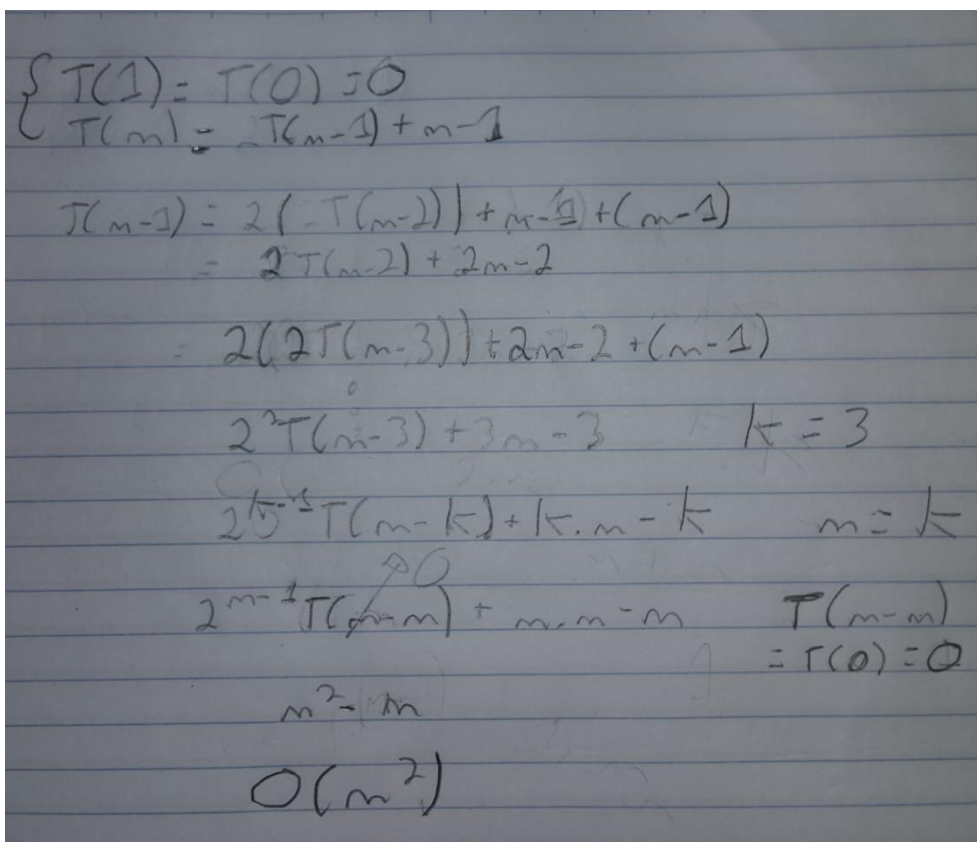 { T(1) = T(0) = 0
T(n) = T(n-1) + n-1
T(n-1) = 2(T(n-2)) + n-1 + (n-1)
= 2T(n-2) + 2n-2
= 2(2T(n-3)) + 2n-2 + (n-1)
2²T(n-3) + 3n-3 k = 3
2^{k-1}T(n-k) + k.n - k n = k
0
2^{n-1}T(n-n) + n.n - n T(n-n)
= T(0) = 0
n² - n
O(n²)